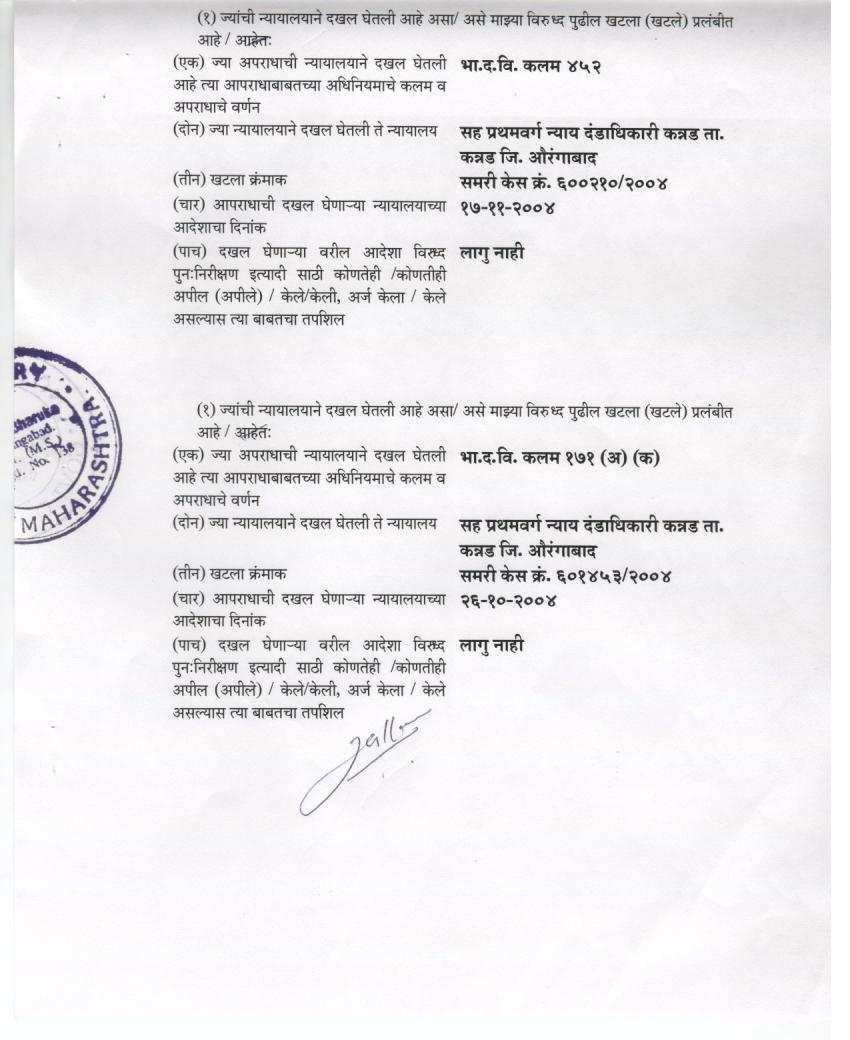 (१) ज्यांची न्यायालयाने दखल घेतली आहे असा/ असे माझ्या विरुध्द पुढील खटला (खटले) प्रलंबीत
आहे / आहेतः
(एक) ज्या अपराधाची न्यायालयाने दखल घेतली
आहे त्या आपराधाबाबतच्या अधिनियमाचे कलम व
अपराधाचे वर्णन
भा.द.वि. कलम ४५२
(दोन) ज्या न्यायालयाने दखल घेतली ते न्यायालय
सह प्रथमवर्ग न्याय दंडाधिकारी कन्नड ता.
कन्नड जि. औरंगाबाद
(तीन) खटला क्रंमाक
समरी केस क्रं. ६००२१०/२००४
(चार) आपराधाची दखल घेणाऱ्या न्यायालयाच्या
आदेशाचा दिनांक
१७-११-२००४
(पाच) दखल घेणाऱ्या वरील आदेशा विरुध्द
पुनःनिरीक्षण इत्यादी साठी कोणतेही /कोणतीही
अपील (अपीले) / केले/केली, अर्ज केला / केले
असल्यास त्या बाबतचा तपशिल
लागु नाही
(१) ज्यांची न्यायालयाने दखल घेतली आहे असा/ असे माझ्या विरुध्द पुढील खटला (खटले) प्रलंबीत
आहे / आहेतः
(एक) ज्या अपराधाची न्यायालयाने दखल घेतली
आहे त्या आपराधाबाबतच्या अधिनियमाचे कलम व
अपराधाचे वर्णन
भा.द.वि. कलम १७१ (अ) (क)
(दोन) ज्या न्यायालयाने दखल घेतली ते न्यायालय
सह प्रथमवर्ग न्याय दंडाधिकारी कन्नड ता.
कन्नड जि. औरंगाबाद
(तीन) खटला क्रंमाक
समरी केस क्रं. ६०१४५३/२००४
(चार) आपराधाची दखल घेणाऱ्या न्यायालयाच्या
आदेशाचा दिनांक
२६-१०-२००४
(पाच) दखल घेणाऱ्या वरील आदेशा विरुध्द
पुनःनिरीक्षण इत्यादी साठी कोणतेही /कोणतीही
अपील (अपीले) / केले/केली, अर्ज केला / केले
असल्यास त्या बाबतचा तपशिल
लागु नाही
(M.S.)
No. 138
MAHARASHTRA